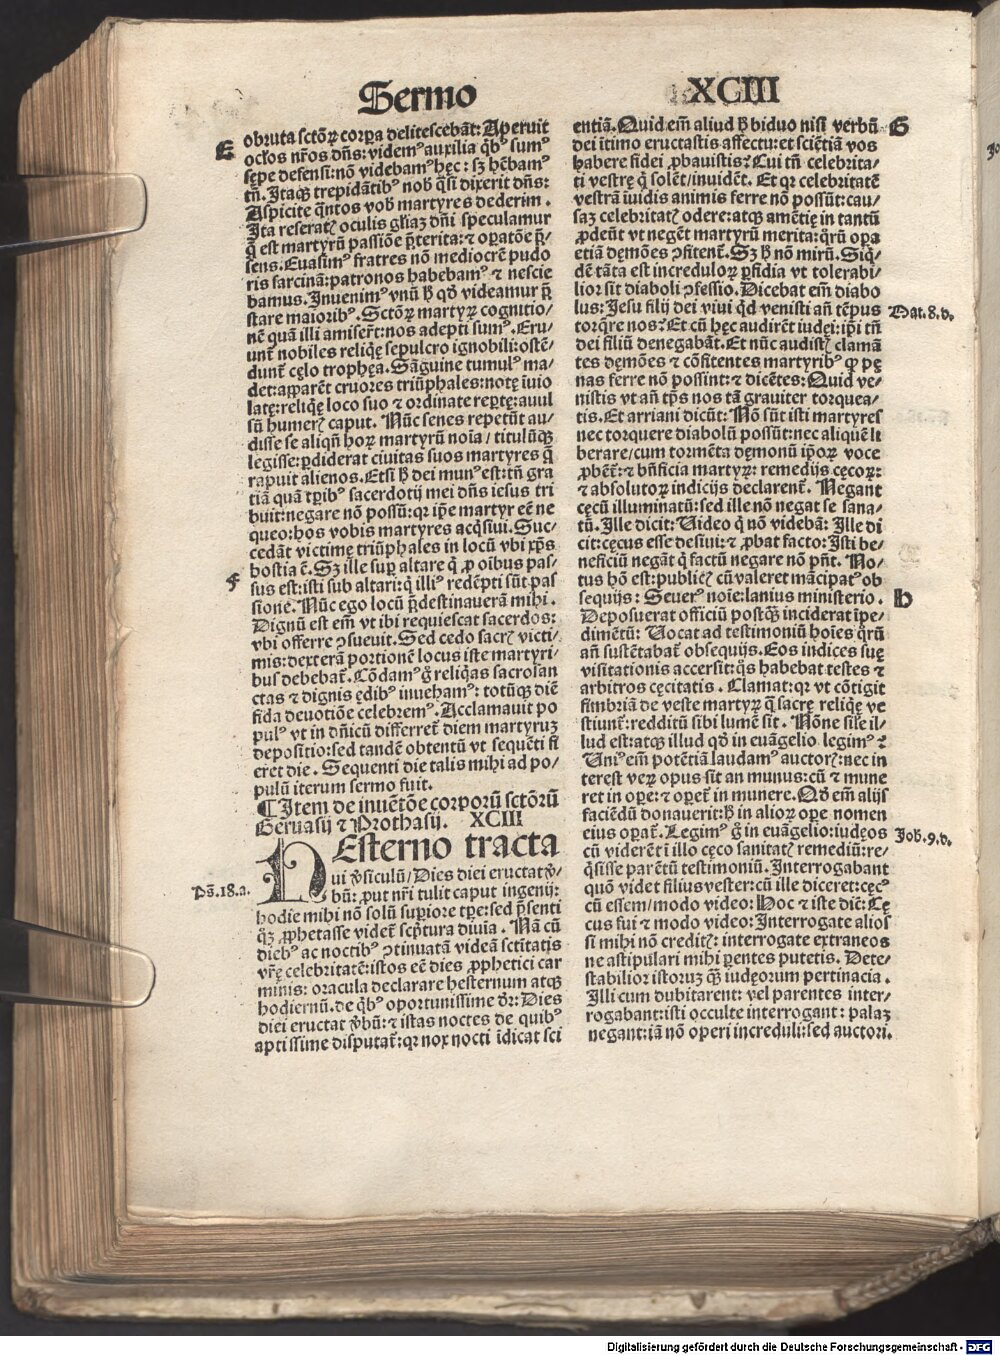 Sermo XCIII
E
obruta sctōꝝ corpa delitescebāt: Aperuit
oclos nr̄os dn̄s: videmꝰ auxilia qͥbꝰ sumꝰ
sępe defensi: nō videbamꝰ hęc: sꝫ hēbamꝰ
tn̄. Itaqꝫ trepidātibꝰ nob̄ q̄si dixerit dn̄s:
Aspicite q̄ntos vob̄ martyres dederim.
Ita reseratꝭ oculis gl̄iaꝫ dn̄i speculamur
q̄ est martyrū passiōe p̄terita: ⁊ oꝑatōe p̄-
sens. Euasimꝰ fratres nō mediocrē pudo
ris sarcinā: patronos habebamꝰ ⁊ nescie
bamus. Inuenimꝰ vnū ħ qd̄ videamur p̄
stare maioribꝰ. Sctōꝝ martyꝝ cognitio-
nē quā illi amiser̄t: nos adepti sumꝰ. Eru-
unt̄ nobiles reliqę sepulcro ignobili: ostē-
dunt̄ cęlo trophęa. Sāguine tumulꝰ ma-
det: apparēt cruores triūphales: notę īuio
latę: reliqę loco suo ⁊ ordinate reptę: auul
sū humerꝭ caput. Nūc senes repetūt au-
disse se aliqn̄ hoꝝ martyrū noīa / titulūqꝫ
legisse: ꝑdiderat ciuitas suos martyres q̄
rapuit alienos. Etsi ħ dei munꝰ est: tn̄ gra
tiā quā tꝑibꝰ sacerdotij mei dn̄s iesus tri
buit: negare nō possū: qꝛ ip̄e martyr eē ne
queo: hos vobis martyres acq̄siui. Suc-
cedāt victimę triūphales in locū vbi xp̄s
hostia ē. Sꝫ ille suꝑ altare q̄ ꝓ oībus pas-
f
sus est: isti sub altari: q̄ illiꝰ redēpti sūt pas
sione. Nūc ego locū p̄destinauerā mihi.
Dignū est em̄ vt ibi requiescat sacerdos:
vbi offerre ↄsueuit. Sed cedo sacrꝭ victi-
mis: dexterā portionē locus iste martyri-
bus debebat̄. Cōdamꝰ g̊ reliq̄as sacrosan
ctas ⁊ dignis ędibꝰ inuehamꝰ: totūqꝫ diē
fida deuotiōe celebremꝰ. Acclamauit po
pulꝰ vt in dn̄icū differret̄ diem martyruꝫ
depositio: sed tandē obtentū vt sequēti fi
eret die. Sequenti die talis mihi ad po-
pulū iterum sermo fuit.
¶ Item de inuētōe corporū sctōrū
Geruasij ⁊ Prothasij. XCIII
HEsterno tracta
ui v̊siculū / Dies diei eructat v̊-
Ps̄. 18. a.
bū: ꝓut nr̄i tulit caput ingenij:
hodie mihi nō solū suꝑiore tꝑe: sed p̄senti
qͦꝫ ꝓphetasse videt̄ scp̄tura diuīa. Nā cū
diebꝰ ac noctibꝰ ↄtinuatā videā sctītatis
vr̄ę celebritatē: istos eē dies ꝓphetici car
minis: oracula declarare hesternum atqꝫ
hodiernū. de qͥbꝰ oportunissime dr̄: Dies
diei eructat v̊bū: ⁊ istas noctes de quibꝰ
aptissime disputat̄: qꝛ nox nocti īdicat sci
entiā. Quid em̄ aliud ħ biduo nisi verbū
G
dei ītimo eructastis affectu: et sciētiā vos
habere fidei ꝓbauistis? Cui tn̄ celebrita-
ti vestrę q̄ solēt / inuidēt. Et qꝛ celebritatē
vestrā īuidis animis ferre nō possūt: cau-
saꝫ celebritatꝭ odere: atqꝫ amētię in tantū
ꝓdeūt vt negēt martyrū merita: qͦrū oꝑa
etiā dęmōes ↄfitent̄. Sꝫ ħ nō mirū. Siq̇-
dē tāta est increduloꝝ ꝑfidia vt tolerabi-
lior sit diaboli ↄfessio. Dicebat em̄ diabo
lus: Jesu filij dei viui qͥd venisti an̄ tēpus
Mat. 8. d.
torq̄re nos? Et cū hęc audirēt iudęi: ip̄i tn̄
dei filiū denegabāt. Et nūc audistꝭ clamā
tes dęmōes ⁊ cōfitentes martyribꝰ ꝙ pę
nas ferre nō possint: ⁊ dicētes: Quid ve-
nistis vt an̄ tp̄s nos tā grauiter torquea-
tis. Et arriani dicūt: Nō sūt isti martyres
nec torquere diabolū possūt: nec aliquē li
berare / cum tormēta dęmonū ip̄oꝝ voce
ꝓbēt̄: ⁊ bn̄ficia martyꝝ: remedijs cęcoꝝ:
⁊ absolutoꝝ indicijs declarent̄. Negant
cęcū illuminatū: sed ille nō negat se sana-
tū. Ille dicit: Video q̄ nō videbā: Ille di
cit: cęcus esse desiui: ⁊ ꝓbat facto: Isti be-
neficiū negāt q̄ factū negare nō pn̄t. No-
tus hō est: publicꝭ cū valeret mācipatꝰ ob
sequijs: Seuerꝰ noīe: lanius ministerio.
h
Deposuerat officiū postq̄ꝫ inciderat īpe-
dimētū: Uocat ad testimoniū hoīes q̄rū
an̄ sustētabat̄ obsequijs. Eos indices suę
visitationis accersit: q̄s habebat testes ⁊
arbitros cęcitatis. Clamat: qꝛ vt cōtigit
fimbriā de veste martyꝝ q̄ sacrę reliqę ve
stiunt̄: redditū sibi lumē sit. Nōne sil̄e il-
lud est: atqꝫ illud qd̄ in euāgelio legimꝰ?
Uniꝰ em̄ potētiā laudamꝰ auctorꝭ: nec in
terest veꝝ opus sit an munus: cū ⁊ mune
ret in oꝑe: ⁊ oꝑet̄ in munere. Qd̄ em̄ alijs
faciēdū donauerit: ħ in alioꝝ oꝑe nomen
eius oꝑat̄. Legimꝰ g̊ in euāgelio: iudęos
Joh. 9. d.
cū viderēt ī illo cęco sanitatꝭ remediū: re-
q̄sisse parētū testimoniū. Interrogabant
quō videt filius vester: cū ille diceret: cęcꝰ
cū essem / modo video: Hoc ⁊ iste dic̄: Cę
cus fui ⁊ modo video: Interrogate alios
si mihi nō creditꝭ: interrogate extraneos
ne astipulari mihi ꝑentes putetis. Dete-
stabilior istoruꝫ q̄ꝫ iudęorum pertinacia.
Illi cum dubitarent: vel parentes inter-
rogabant: isti occulte interrogant: palaꝫ
negant: iā nō operi increduli: sed auctori.
Digitalisierung gefördert durch die Deutsche Forschungsgemeinschaft - DFG